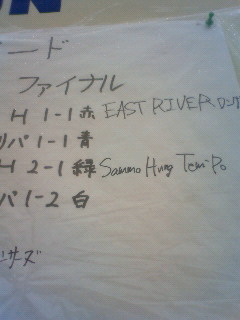 ード
ファイナル
H 1-1 赤 EAST RIVER
リパ 1-1 青
H 2-1 緑 Sammo Hung Tem-Po
パ 1-2 白
サーズ